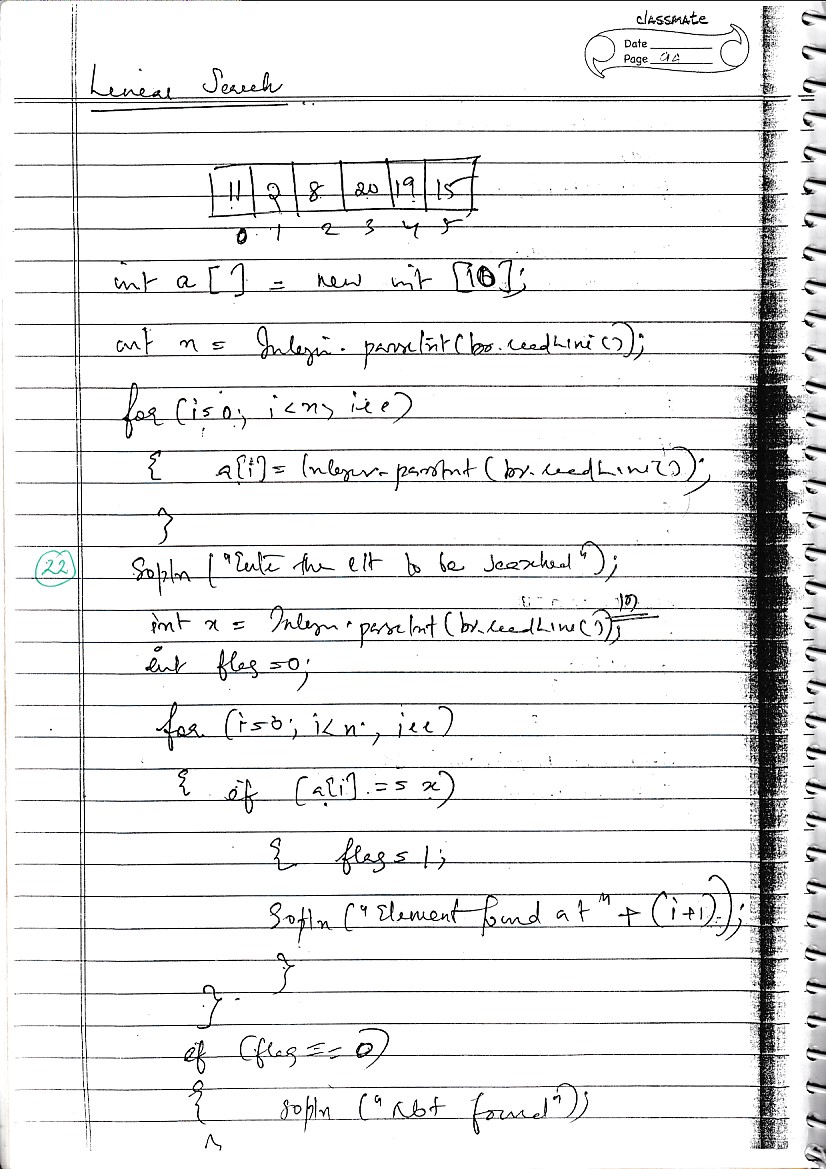 classmate
Date
Page
Linear Search
11 2 8 20 19 15
0 1 2 3 4 5
int a [ ] = new int [10];
int n = Integer.parseInt(br.readLine());
for (i=0; i<n; i++)
{ a[i] = Integer.parseInt(br.readLine());
}
22 Sopln ("Enter the elt to be searched");
int x = Integer.parseInt(br.readLine());
int flag =0;
for (i=0; i<n; i++)
{ if (a[i] == x)
{ flag = 1;
Sopln ("Element found at" + (i+1));
}
}
if (flag == 0)
{ sopln ("Not found");